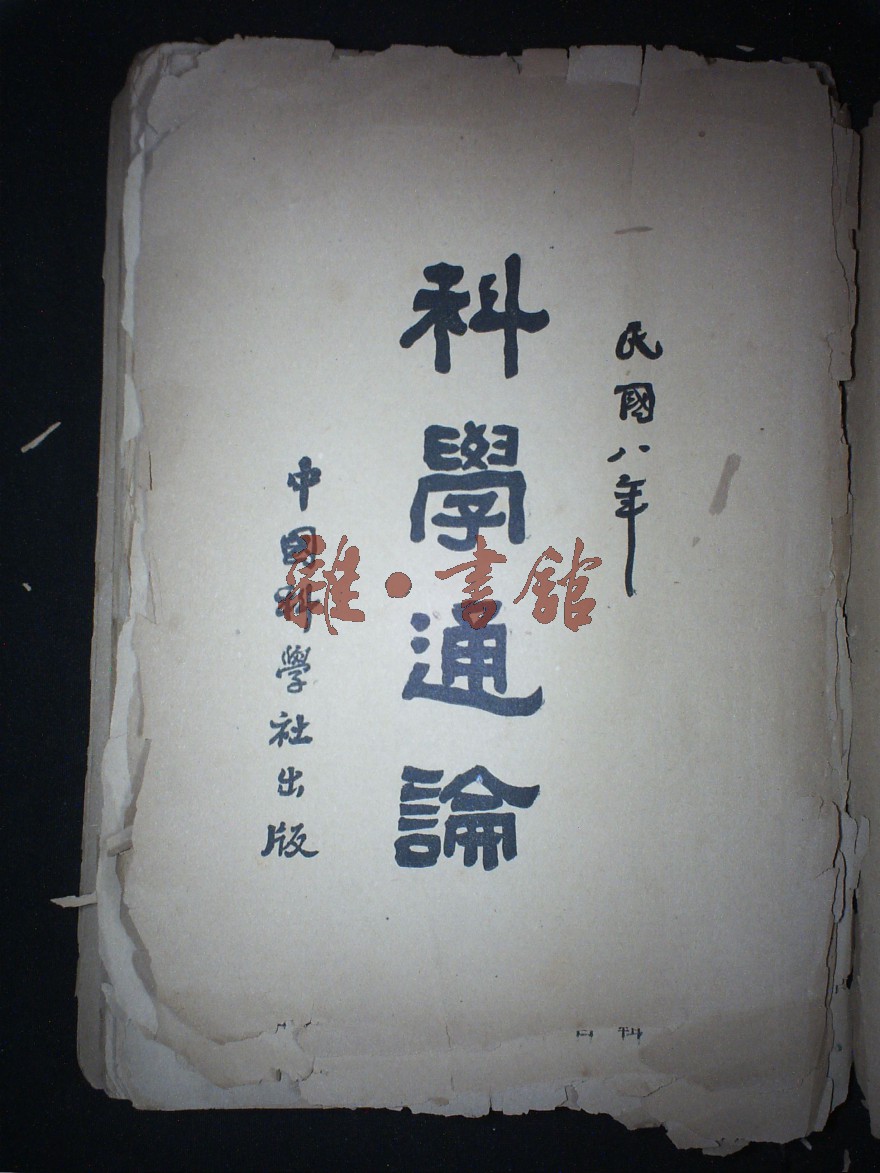 民國八年
科學通論
中國科學社出版
雜·書館
科